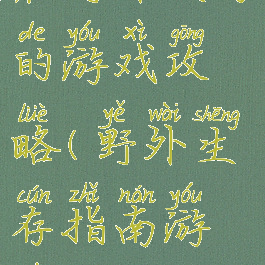 de yóu xì gōng
的游戏攻
lüè yě wài shēng
略(野外生
cún zhǐ nán yóu
存指南游